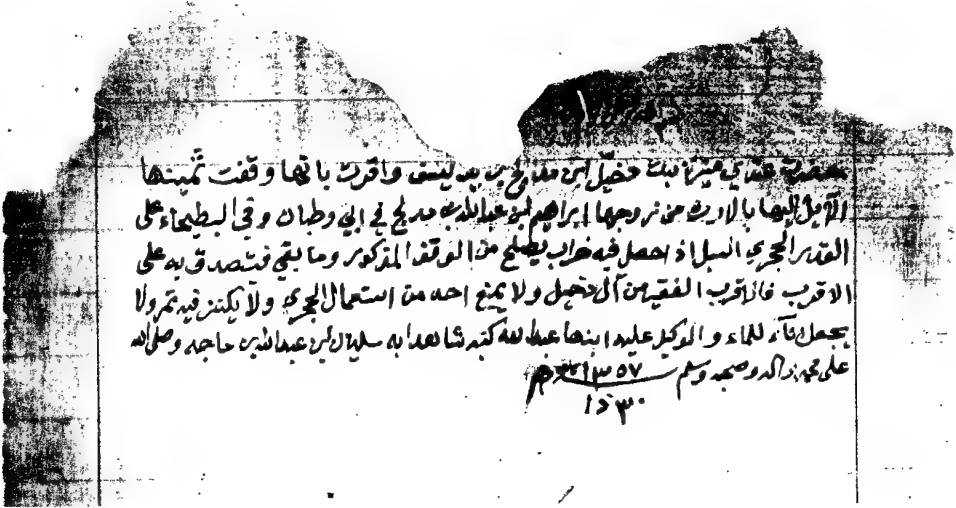 حضرت عندي ميثا بنت دخيّل ابن مدلج بن يوسف واقرت بانها وقفت ثمينها
الآيل إليها بالارث من زوجها إبراهيم ابن عبدالله بن مدلج في ابي وطبان وفي البطيحاء على
القدير المجري السبل اذ احصل فيه خراب يصلح من الوقف المذكور وما بقي فتصدق به على
الاقرب فالاقرب الفقير من آل دخيل ولا يمنع احد من استعمال المجرى ولا يكنز فيه تمر ولا
يجعل للماء والوكيل عليه ابنها عبدالله كتبه شاهدا به سليمان بن عبدالله بن حاجد وصلى الله
على محمد واله وصحبه وسلم ١٣٥٧